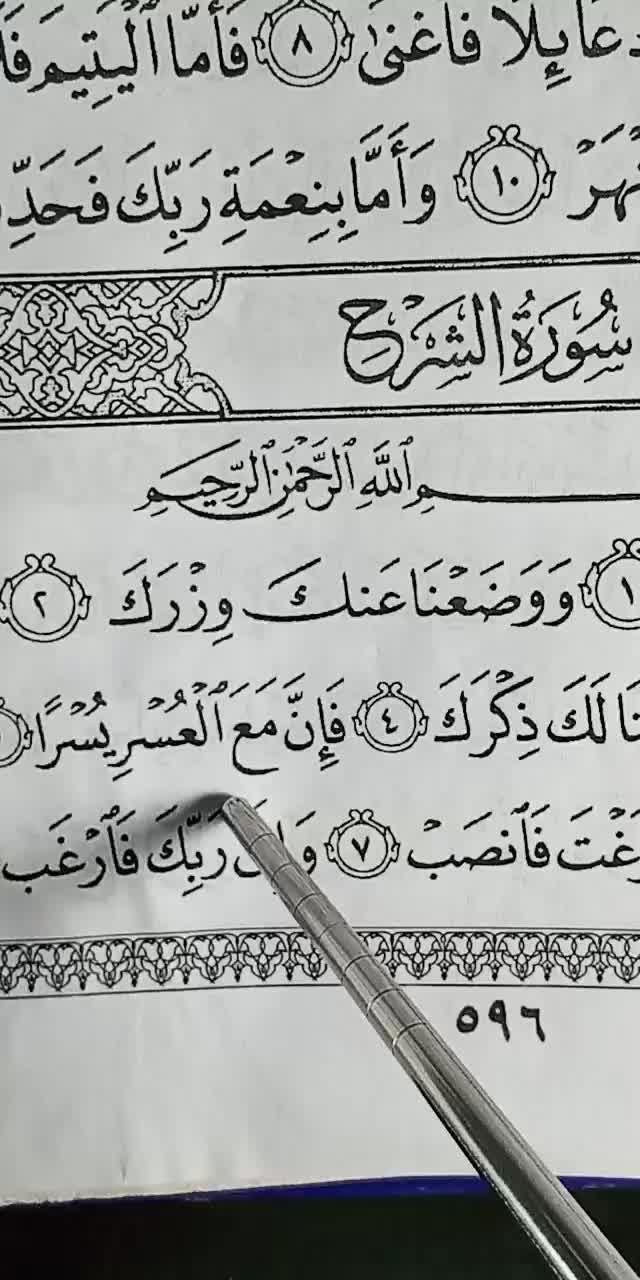 عَآئِلًا فَأَغْنَىٰ ٨ فَأَمَّا ٱلْيَتِيمَ
١٠ وَأَمَّا بِنِعْمَةِ رَبِّكَ
سُورَةُ الشَّرْحِ
ٱللَّهِ ٱلرَّحْمَٰنِ ٱلرَّحِيمِ
١ وَوَضَعْنَا عَنكَ وِزْرَكَ ٢
لَكَ ذِكْرَكَ ٤ فَإِنَّ مَعَ ٱلْعُسْرِ يُسْرًا
فَٱنصَبْ ٧ رَبِّكَ فَٱرْغَب
٥٩٦